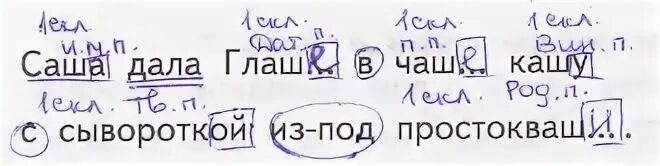 1скл. 1скл. 1скл. 1скл.
И.м.п. Дат.п. П.п. Вин.п.
Саша дала Глаше в чаше кашу
1скл. Тв.п. 1скл. Род.п.
с сывороткой из-под простокваши.